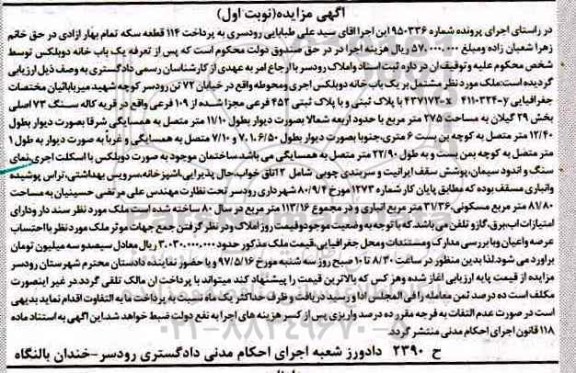 آگهی مزایده(نوبت اول)
در راستای اجرای پرونده شماره ۹۵۰۳۳۶ این اجرا آقای سید علی طبایایی رودسری به پرداخت ۱۱۴ قطعه سکه تمام بهار آزادی در حق خانم
زهرا شعبان زاده ومبلغ ۵۷.۰۰۰.۰۰۰ ریال هزینه اجرا در حق صندوق دولت محکوم است که پس از تعرفه یک باب خانه دوبلکس توسط
شخص محکوم علیه و توقیف آن در اداره ثبت اسناد واملاک رودسر با ارجاع امر به عهدی از کارشناسان رسمی دادگستری به وصف ذیل ارزیابی
گردیده است:ملک مورد نظر مشتمل بر یک باب خانه دوبلکس آجری ومحوطه واقع در خیابان ۷۲ تن رودسر کوچه شهید میربابائیان مختصات
جغرافیایی ۴۱۱۰۳۲۴-۷ ۴۳۷۱۷۳-X با پلاک ثبتی و با پلاک ثبتی ۴۵۲ فرعی مجزا شده از ۱۰۹ فرعی واقع در قریه کاله سنگ ۷۳ اصلی
بخش ۲۹ گیلان به مساحت ۲۷۵ متر مربع با حدود اربعه شمالا بصورت دیوار بطول ۱۱/۱۰ متر متصل به همسایگی شرقا بصورت دیوار بطول
۱۲/۴۰ متر متصل به کوچه بن بست ۶ متری،جنوبا بصورت دیوار بطول ۷،۱،۶/۵۰ و ۷/۱۰ متصل به همسایگی و غربا به صورت دیوار به طول ۱
متر متصل به کوچه بمن بست و به طول ۲۲/۹۰ متر متصل به همسایگی می باشد.ساختمان موجود به صورت دوبلکس با اسکلت آجری،نمای
سنگ و اندود سیمان،پوشش سقف ایرانیت و سربندی چوبی شامل ۲ اتاق خواب،حال پذیرایی،آشپزخانه،سرویس بهداشتی،تراس پوشیده
وانباری مسقف بوده که مطابق پایان کار شماره ۱۲۷۳ مورخ ۸۰/۹/۴ شهرداری رودسر تحت نظارت مهندس علی مرتضی حسینیان به مساحت
۸۱/۸۰ متر مربع مسکونی،۳۱/۳۶ متر مربع انباری و در مجموع ۱۱۳/۱۶ متر مربع در سال ۸۰ ساخته شده است.ملک مورد نظر سند دار ودارای
امتیازات آب،برق،گاز و تلفن می باشد.که با توجه به وضعیت موجودوقیمت روز املاک ودر نظر گرفتن جمع جهات موثر ملک مورد نظر با احتساب
عرصه واعیان وبا بررسی مدارک ومستندات ومحل جغرافیایی،قیمت ملک مذکور حدود ۳.۰۳۰.۰۰۰.۰۰۰ ریال معادل سیصدو سه میلیون تومان
برآورد می شود.لذا بدین منظور در ساعت ۸/۳۰ تا ۱۰ صبح روز سه شنبه مورخ ۹۷/۵/۱۶ وبا حضور نماینده دادستان محترم شهرستان رودسر
مزایده از قیمت پایه ارزیابی آغاز شده وهر کس که بالاترین قیمت را پیشنهاد کند میتواند با پرداخت آن مالک تلقی گردد.در غیر اینصورت
مکلف است ده درصد ثمن معامله رافی المجلس ادا و رسید دریافت و ظرف حداکثر یک ماه نسبت به پرداخت مابه التفاوت اقدام نماید بدیهی
است در صورت عدم التفات به قرجه مقرر ده درصد واریزی پس از کسر هزینه های اجرا به نفع دولت ضبط خواهد شد.این آگهی به استناد ماده
۱۱۸ قانون اجرای احکام مدنی منتشر گردد.
ح ۲۳۹۰ دادورز شعبه اجرای احکام مدنی دادگستری رودسر-خندان بالنگاه
۰۲۱-۸۸۳۴۹۶۷۰